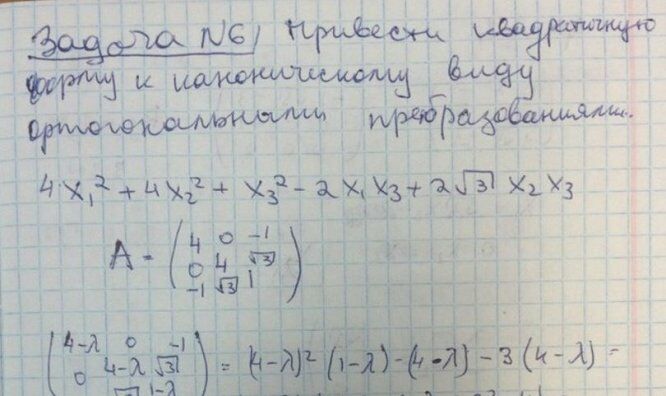 Задача №6) Привести квадратичную
форму к каноническому виду
ортогональными преобразованиями.
4x₁² + 4x₂² + x₃² - 2x₁x₃ + 2√3 x₂x₃
A = (4 0 -1
0 4 √3
-1 √3 1)
(4-λ 0 -1
0 4-λ √3
√3 1-λ) = (4-λ)² (1-λ) - (4-λ) - 3(4-λ) =